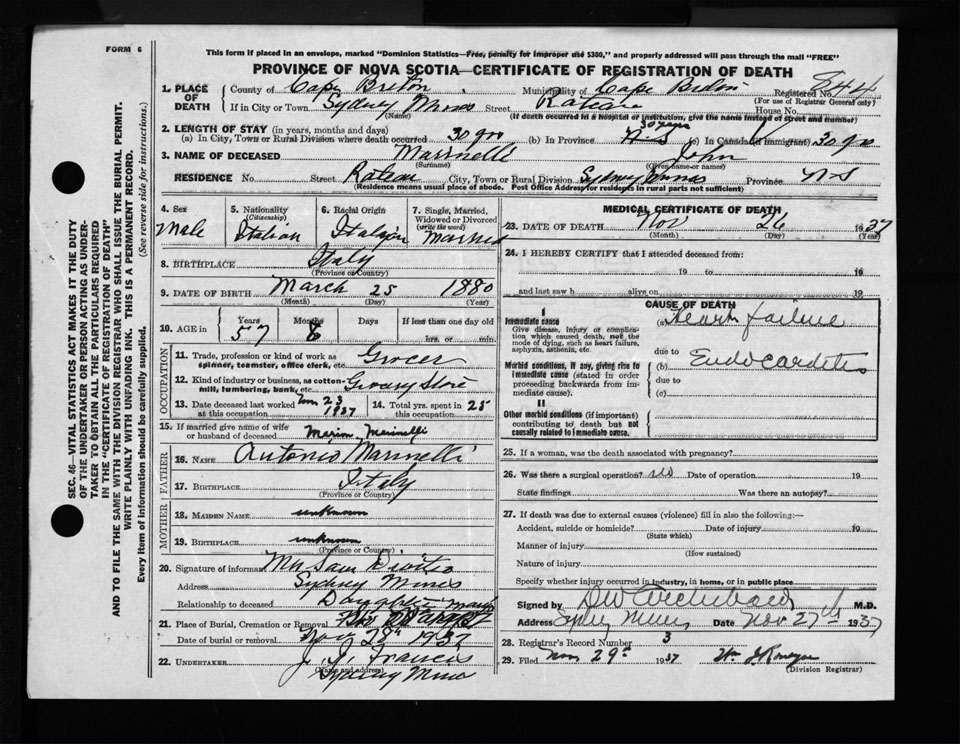 FORM 6
This form if placed in an envelope, marked "Dominion Statistics—Free, penalty for improper use $300," and properly addressed will pass through the mail "FREE"
PROVINCE OF NOVA SCOTIA—CERTIFICATE OF REGISTRATION OF DEATH
SEC. 46—VITAL STATISTICS ACT MAKES IT THE DUTY
OF THE UNDERTAKER OR PERSON ACTING AS UNDER-
TAKER TO OBTAIN ALL THE PARTICULARS REQUIRED
IN THE "CERTIFICATE OF REGISTRATION OF DEATH"
AND TO FILE THE SAME WITH THE DIVISION REGISTRAR WHO SHALL ISSUE THE BURIAL PERMIT.
WRITE PLAINLY WITH UNFADING INK. THIS IS A PERMANENT RECORD.
Every item of information should be carefully supplied. (See reverse side for instructions.)
1. PLACE OF DEATH County of Cape Breton Municipality of Cape Breton Registered No. 844
(For use of Registrar General only)
If in City or Town Sydney Mines Street House No.
(Name) (If death occurred in a hospital or institution, give the name instead of street and number)
2. LENGTH OF STAY (in years, months and days) 30 years
(a) In City, Town or Rural Division where death occurred 30 yrs (b) In Province N-S (c) In Canada (if immigrant) 30 yrs
3. NAME OF DECEASED Marinelli John
(Surname) (Given name or names)
RESIDENCE No. Street City, Town or Rural Division Sydney Mines Province N-S
(Residence means usual place of abode. Post Office Address for residents in rural parts not sufficient)
4. Sex Male
5. Nationality (Citizenship) Italian
6. Racial Origin Italian
7. Single, Married, Widowed or Divorced (write the word) Married
8. BIRTHPLACE Italy
(Province or Country)
9. DATE OF BIRTH March 25 1880
(Month) (Day) (Year)
10. AGE in Years 57 Months 8 Days If less than one day old hrs. or min.
OCCUPATION
11. Trade, profession or kind of work as spinner, teamster, office clerk, etc. Grocer
12. Kind of industry or business, as cotton-mill, lumbering, bank, etc. Grocery Store
13. Date deceased last worked at this occupation Nov 23 1937
14. Total yrs. spent in this occupation 25
15. If married give name of wife or husband of deceased Marion Marinelli
FATHER
16. NAME Antonio Marinelli
17. BIRTHPLACE Italy
(Province or Country)
MOTHER
18. MAIDEN NAME unknown
19. BIRTHPLACE unknown
(Province or Country)
20. Signature of informant Mrs Sam
Address Sydney Mines
Relationship to deceased Daughter
21. Place of Burial, Cremation or Removal
Date of burial or removal Nov 28th 1937
22. UNDERTAKER J. J. Francis
(Name and address) Sydney Mines
MEDICAL CERTIFICATE OF DEATH
23. DATE OF DEATH Nov 26 1937
(Month) (Day) (Year)
24. I HEREBY CERTIFY that I attended deceased from:
19 to 19
and last saw h alive on 19
CAUSE OF DEATH
I
Immediate cause
Give disease, injury or complication which caused death, not the mode of dying, such as heart failure, asphyxia, asthenia, etc.
(a) Heart failure
due to
Morbid conditions, if any, giving rise to immediate cause (stated in order proceeding backwards from immediate cause).
(b) Endocarditis
due to
(c)
II
Other morbid conditions (if important) contributing to death but not causally related to immediate cause.
25. If a woman, was the death associated with pregnancy?
26. Was there a surgical operation? Date of operation 19
State findings Was there an autopsy?
27. If death was due to external causes (violence) fill in also the following:—
Accident, suicide or homicide? Date of injury 19
(State which)
Manner of injury
(How sustained)
Nature of injury
Specify whether injury occurred in industry, in home, or in public place
Signed by D W Archibald M.D.
Address Sydney Mines Date Nov 27th 1937
28. Registrar's Record Number 3
29. Filed Nov 29th 1937 Wm
(Division Registrar)